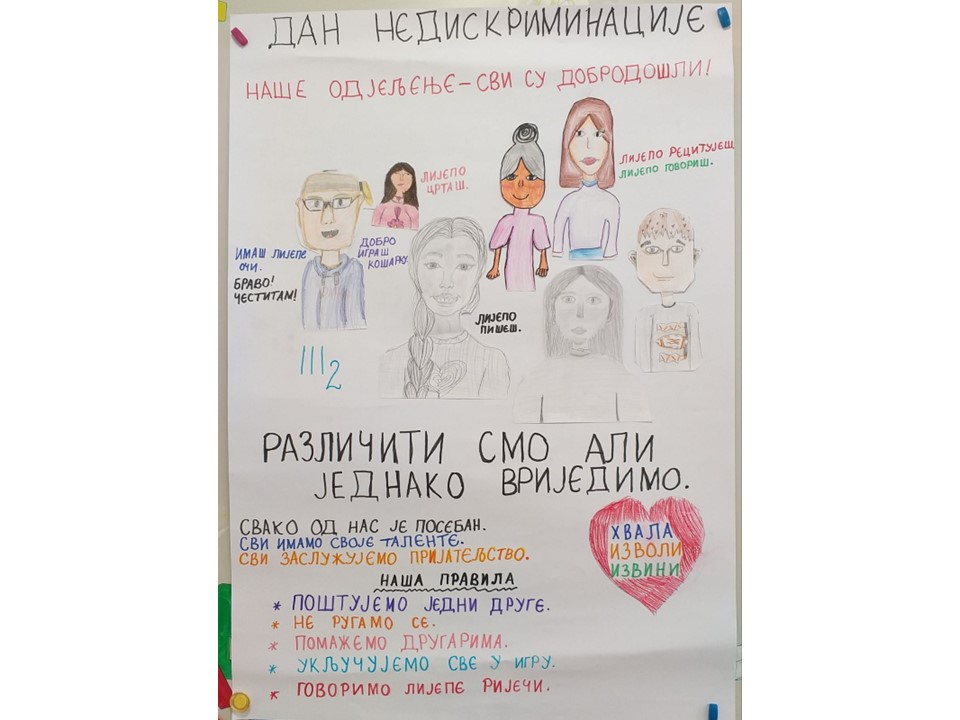 ДАН НЕДИСКРИМИНАЦИЈЕ
НАШЕ ОДЈЕЉЕЊЕ – СВИ СУ ДОБРОДОШЛИ!
ЛИЈЕПО РЕЦИТУЈЕШ
ЛИЈЕПО ГОВОРИШ.
ЛИЈЕПО
ЦРТАШ.
ИМАШ ЛИЈЕПЕ
ОЧИ.
БРАВО!
ЧЕСТИТАМ!
ДОБРО
ИГРАШ
КОШАРКУ.
ЛИЈЕПО
ПИШЕШ.
III2
РАЗЛИЧИТИ СМО АЛИ
ЈЕДНАКО ВРИЈЕДИМО.
СВАКО ОД НАС ЈЕ ПОСЕБАН.
СВИ ИМАМО СВОЈЕ ТАЛЕНТЕ.
СВИ ЗАСЛУЖУЈЕМО ПРИЈАТЕЉСТВО.
ХВАЛА
ИЗВОЛИ
ИЗВИНИ
НАША ПРАВИЛА
* ПОШТУЈЕМО ЈЕДНИ ДРУГЕ.
* НЕ РУГАМО СЕ.
* ПОМАЖЕМО ДРУГАРИМА.
* УКЉУЧУЈЕМО СВЕ У ИГРУ.
* ГОВОРИМО ЛИЈЕПЕ РИЈЕЧИ.